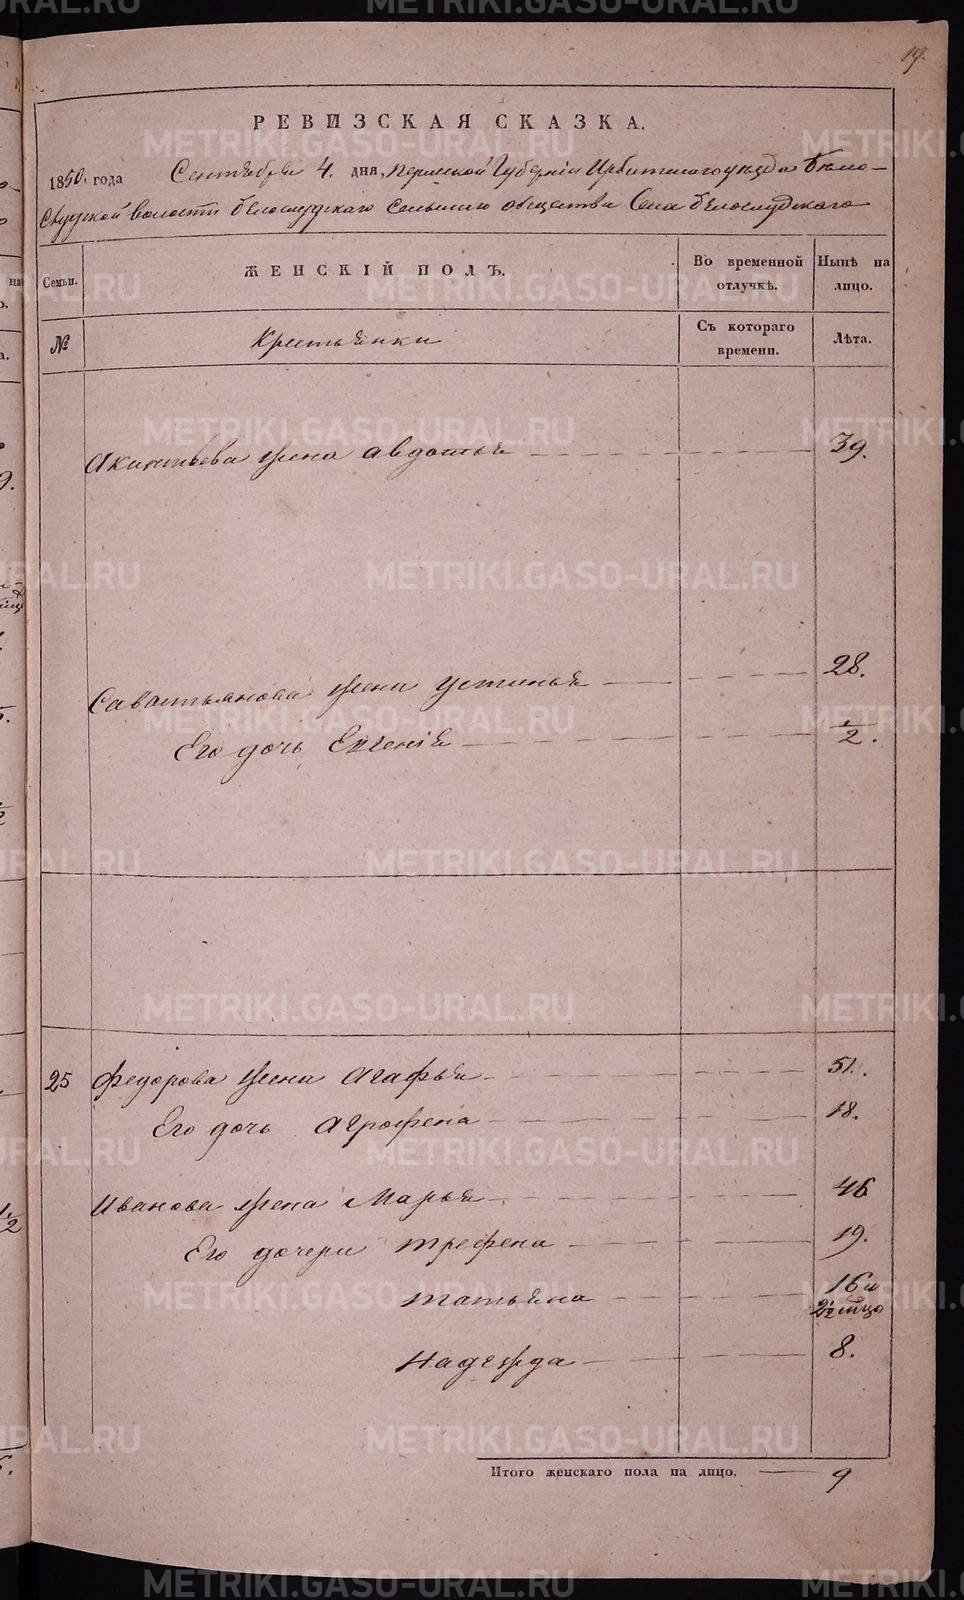 19.
РЕВИЗСКАЯ СКАЗКА.
1850. года Сентября 4. дня, Пермской Губерніи Ирбитскаго уезда Бѣло-
слудской волости Белослудскаго Сельскаго общества Села Белослудскаго
Семьи. ЖЕНСКІЙ ПОЛЪ. Во временной отлучкѣ. Нынѣ на лицо.
№ Крестьянки Съ котораго времени. Лѣта.
Акинтьева жена Авдотья 39.
Савастьянова жена Устинья 28.
Его дочь Евгенія 1/2.
25 Федорова жена Агафья 51.
Его дочь Агрофена 18.
Иванова жена Марья 46
Его дочери Трефена 19.
Татьяна 16 и
2 1/2 мцо
Надежда 8.
Итого женскаго пола на лицо. 9
METRIKI.GASO-URAL.RU